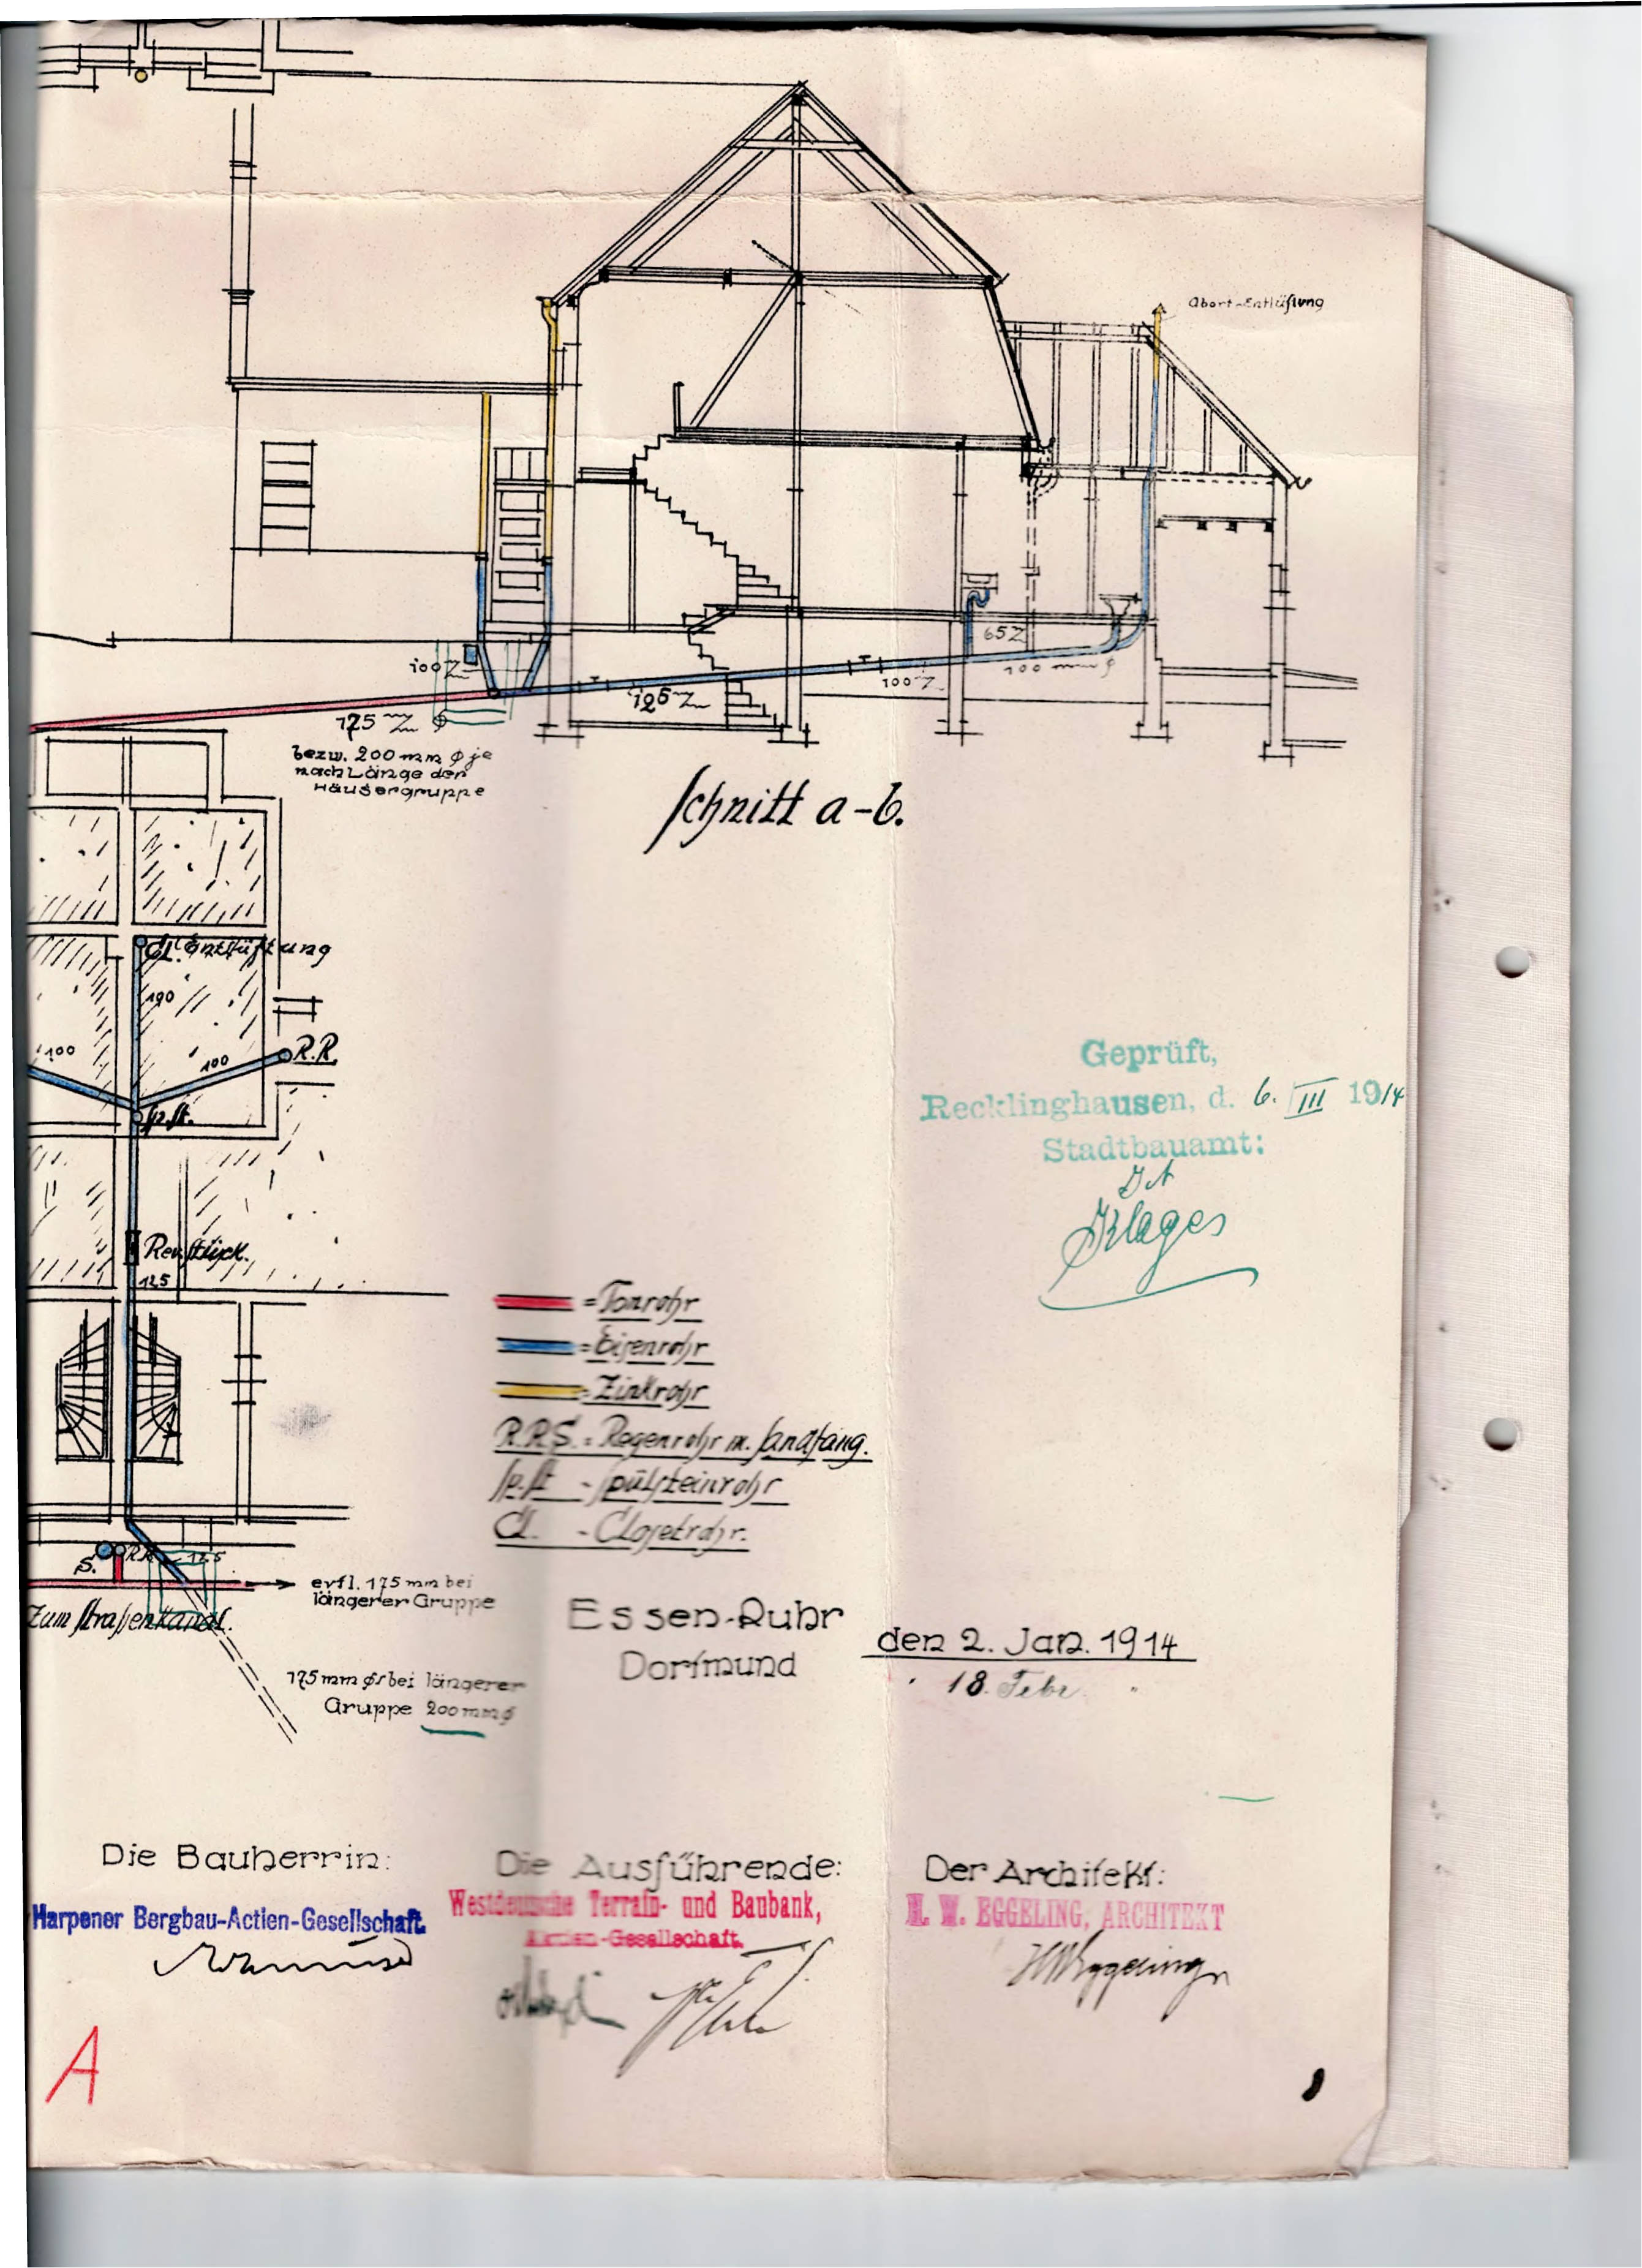 Abort-Entlüftung
65
100
100 mm φ
100
125
175
bezw. 200 mm φ je
nach Länge der
Häusergruppe
Schnitt a-b.
Cl. Entlüftung
100
100
100
R.R.
Sp.St.
Rev. Stück.
125
= Tonrohr
= Eisenrohr
= Zinkrohr
R.R.S. = Regenrohr m. Sandfang.
Sp.St - Spülsteinrohr
Cl. - Closetrohr.
Geprüft,
Recklinghausen, d. 6. III 1914
Stadtbauamt:
Klages
S.
R.R.
125
evtl. 175 mm bei
längerer Gruppe
Zum Straßenkanal.
175 mm φ bei längerer
Gruppe 200 mm φ
Essen-Ruhr
den 2. Jan. 1914
Dortmund
" 18. Febr. "
Die Bauherrin:
Harpener Bergbau-Actien-Gesellschaft.
Die Ausführende:
Westdeutsche Terrain- und Baubank,
Aktien-Gesellschaft.
Der Architekt:
H. W. EGGELING, ARCHITEKT
HWEggeling
A